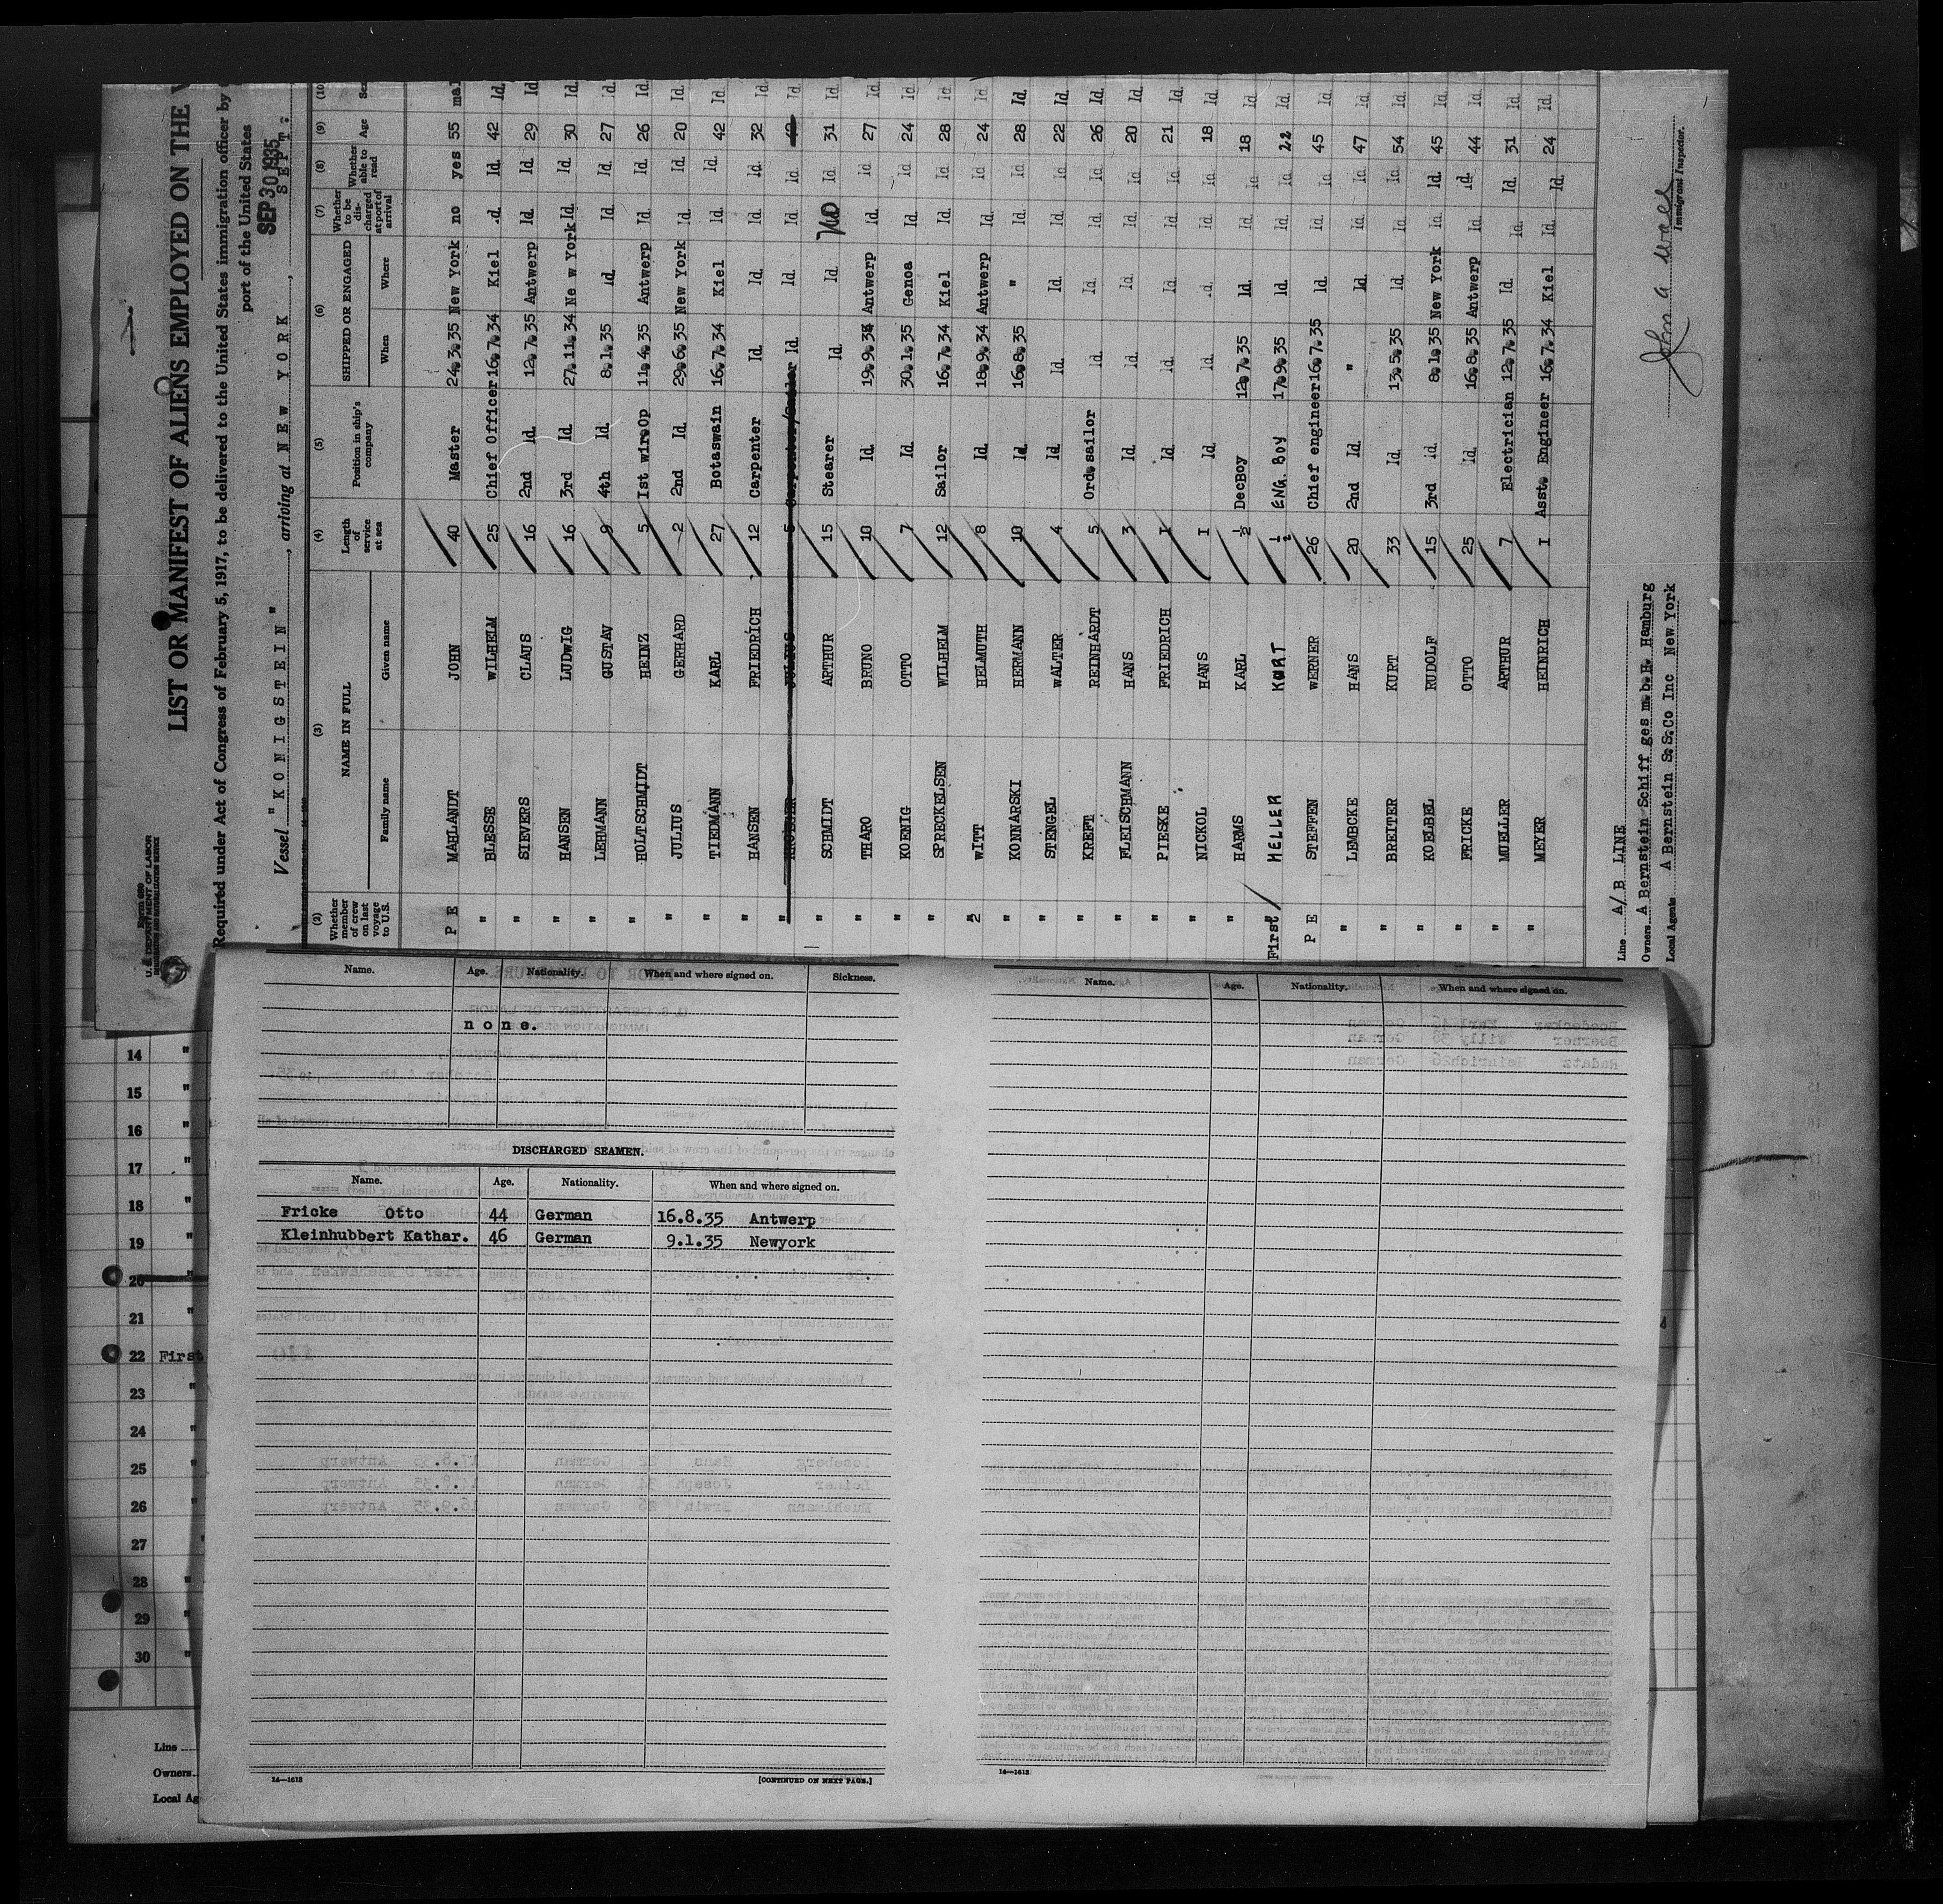 Form 680
U. S. DEPARTMENT OF LABOR
IMMIGRATION AND NATURALIZATION SERVICE
LIST OR MANIFEST OF ALIENS EMPLOYED ON THE
Required under Act of Congress of February 5, 1917, to be delivered to the United States immigration officer by
port of the United States
SEP 30 1935
Vessel " K O N I G S T E I N " , arriving at N E W Y O R K , SEPT:
(2) (3) (4) (5) (6) (7) (8) (9) (10)
Whether member of crew on last voyage to U.S. NAME IN FULL Family name Given name Length of service at sea Position in ship's company SHIPPED OR ENGAGED When Where Whether to be discharged at port of arrival Whether able to read Age
P E MAHLANDT JOHN 40 Master 24.3.35 New York no yes 55 mal
" BLESSE WILHELM 25 Chief Officer 16.7.34 Kiel .d. Id. 42 Id.
" SIEVERS CLAUS 16 2nd Id. 12.7.35 Antwerp Id. Id. 29 Id
" HANSEN LUDWIG 16 3rd Id. 27.11.34 Ne w York Id. Id. 30 Id.
" LEHMANN GUSTAV 9 4th Id. 8.1.35 Id. Id. Id. 27 Id.
" HOLTSCHMIDT HEINZ 5 Ist wireOp 11.4.35 Antwerp Id. Id. 26 Id.
" JULIUS GERHARD 2 2nd Id. 29.6.35 New York Id. Id. 20 Id.
" TIEDMANN KARL 27 Botaswain 16.7.34 Kiel Id. Id. 42 Id.
" HANSEN FRIEDRICH 12 Carpenter Id. Id. Id. Id. 32 Id.
" JULIUS 5 Id. Id. Id. Id. Id.
" SCHMIDT ARTHUR 15 Stearer Id. Id. no Id. 31 Id.
" THARO BRUNO 10 Id. 19.9.34 Antwerp Id. Id. 27 Id.
" KOENIG OTTO 7 Id. 30.1.35 Genoa Id. Id. 24 Id.
" SPRECKELSEN WILHELM 12 Sailor 16.7.34 Kiel Id. Id. 28 Id.
" WITT HELMUTH 8 Id. 18.9.34 Antwerp Id. Id. 24 Id.
" KONNARSKI HERMANN 10 Id. 16.8.35 " Id. Id. 28 Id.
" STENGEL WALTER 4 Id. Id. Id. Id. Id. 22 Id.
" KREFT REINHARDT 5 Ord.sailor Id. Id. Id. Id. 26 Id.
" FLEISCHMANN HANS 3 Id. Id. Id. Id. Id. 20 Id.
" PIESKE FRIEDRICH I Id. Id. Id. Id. Id. 21 Id.
" NICKOL HANS I Id. Id. Id. Id. Id. 18 Id.
" HARMS KARL ½ DecBoy 12.7.35 Id. Id. Id. 18 Id.
First HELLER KURT ½ ENG. BOY 17.9.35 Id. Id. Id. 22 Id.
P E STEFFEN WERNER 26 Chief engineer 16.7.35 Id. Id. Id. 45 Id.
" LEMBCKE HANS 20 2nd Id. " Id. Id. Id. 47 Id.
" BREITER KURT 33 Id. 13.5.35 Id. Id. Id. 54 Id.
" KOELBEL RUDOLF 15 3rd Id. 8.1.35 New York Id. Id. 45 Id.
" FRICKE OTTO 25 Id. 16.8.35 Antwerp Id. Id. 44 Id.
" MUELLER ARTHUR 7 Electrician 12.7.35 Id. Id. Id. 31 Id.
" MEYER HEINRICH I Asst. Engineer 16.7.34 Kiel Id. Id. 24 Id.
Line A/B LINE
Owners A Bernstein Schiff ges m.b.H. Hamburg
Local Agents A Bernstein S.S.Co Inc New York
John A
Immigrant Inspector.
Name. Age. Nationality. When and where signed on. Sickness.
n o n e.
DISCHARGED SEAMEN.
Name. Age. Nationality. When and where signed on.
Fricke Otto 44 German 16.8.35 Antwerp
Kleinhubbert Kathar. 46 German 9.1.35 Newyork
14—1613 [CONTINUED ON NEXT PAGE.]
Name. Age. Nationality. When and where signed on.
14—1613
14 "
15 "
16 "
17 "
18 "
19 "
20 "
21 "
22 First
23 "
24 "
25 "
26 "
27 "
28 "
29 "
30 "
Line
Owners
Local Ag